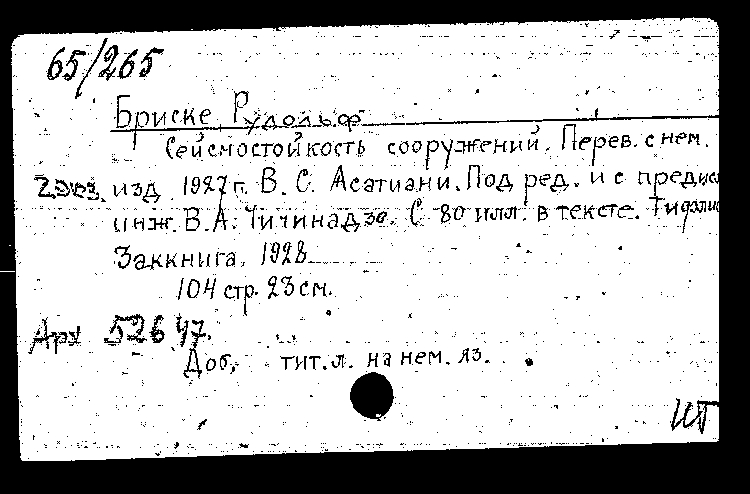 65/265
Бриске, Рудольф
Сейсмостойкость сооружений. Перев. с нем.
2 экз. изд 1927 г. В. С. Асатиани. Под ред. и с предисл
инж. В. А. Чичинадзе. С 80 илл. в тексте. Тифлис
Заккнига, 1928
104 стр. 23 см.
Арх 526 47.
Доб. тит. л. на нем. яз.